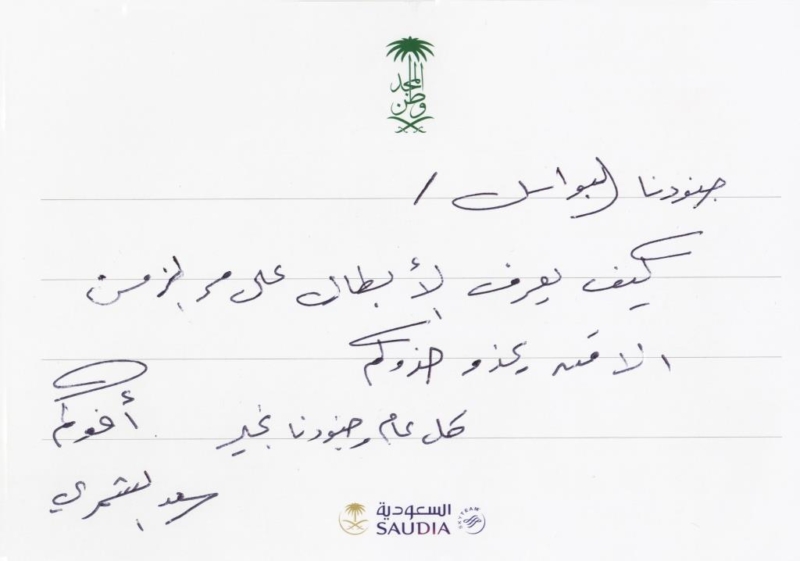 المجد
وطن
جنودنا البواسل /
كيف يعرف الأبطال على مر الزمن
الا من يحذو حذوكم
كل عام وجنودنا بخير
أخوكم
سعد الشمري
السعودية
SAUDIA
SKYTEAM